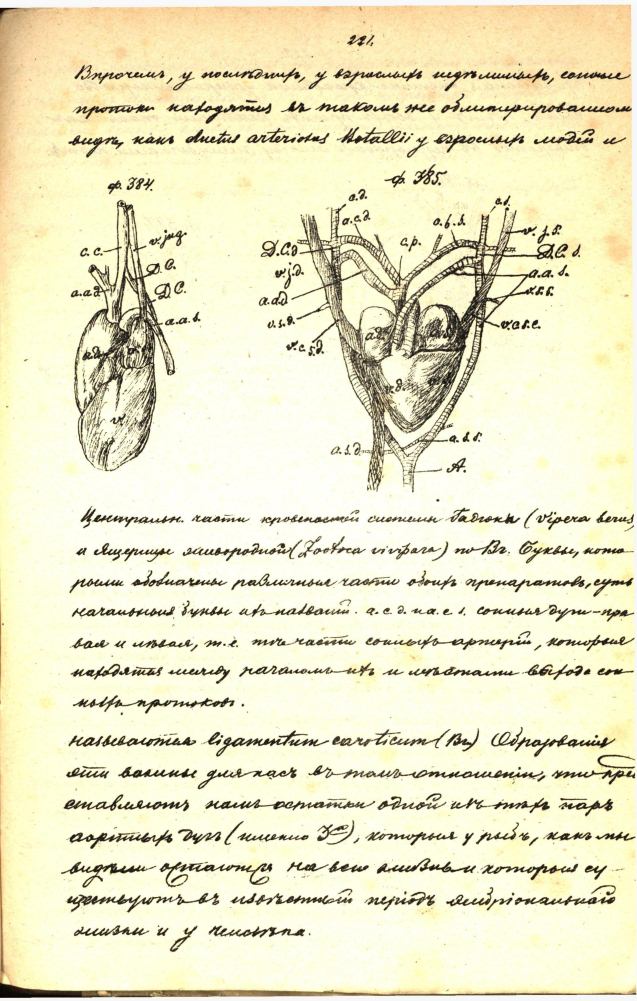 221.
Впрочемъ, у последнихъ, у взрослыхъ недѣлимыхъ, сонные
протоки находятся въ такомъ же облитерированномъ
видѣ, какъ ductus arteriosus Botallii у взрослыхъ людей и
ф. 384.
c.c.
v. jug
D.C.
a.a.d.
D.C.
a.a.s.
a.d.
v.
ф. 385.
a.d.
c.s.
a.c.d.
v. j. s.
c.p.
D.C.d
D.C. s.
v.j.d.
a.a. s.
a.a.d
v.s.s.
v.s.d.
v.c.s.d.
a.d.
v.d.
a.s.d.
a.s.s.
A.
Центральн. части кровеносной системы Гадюки (Vipera berus)
и Ящерицы живородной (Zootoca vivipara) по Вг. Буквы, кото-
рыми обозначены различныя части обоихъ препаратовъ, суть
начальныя буквы ихъ названій. a.c.d. и a.c.s. сонныя дуги-пра-
вая и лѣвая, т.е. тѣ части сонныхъ артерій, которыя
находятся между началомъ ихъ и мѣстами выхода сон-
ныхъ протоковъ.
называются ligamentum caroticum (Вг) Образованія
эти важны для насъ въ томъ отношеніи, что пред
ставляютъ намъ остатки одной изъ тѣхъ паръ
аортныхъ дугъ (именно 3), которыя у рыбъ, какъ мы
видѣли остаются на всю жизнь и которыя су-
ществуютъ въ извѣстный періодъ эмбріональной
жизни и у человѣка.